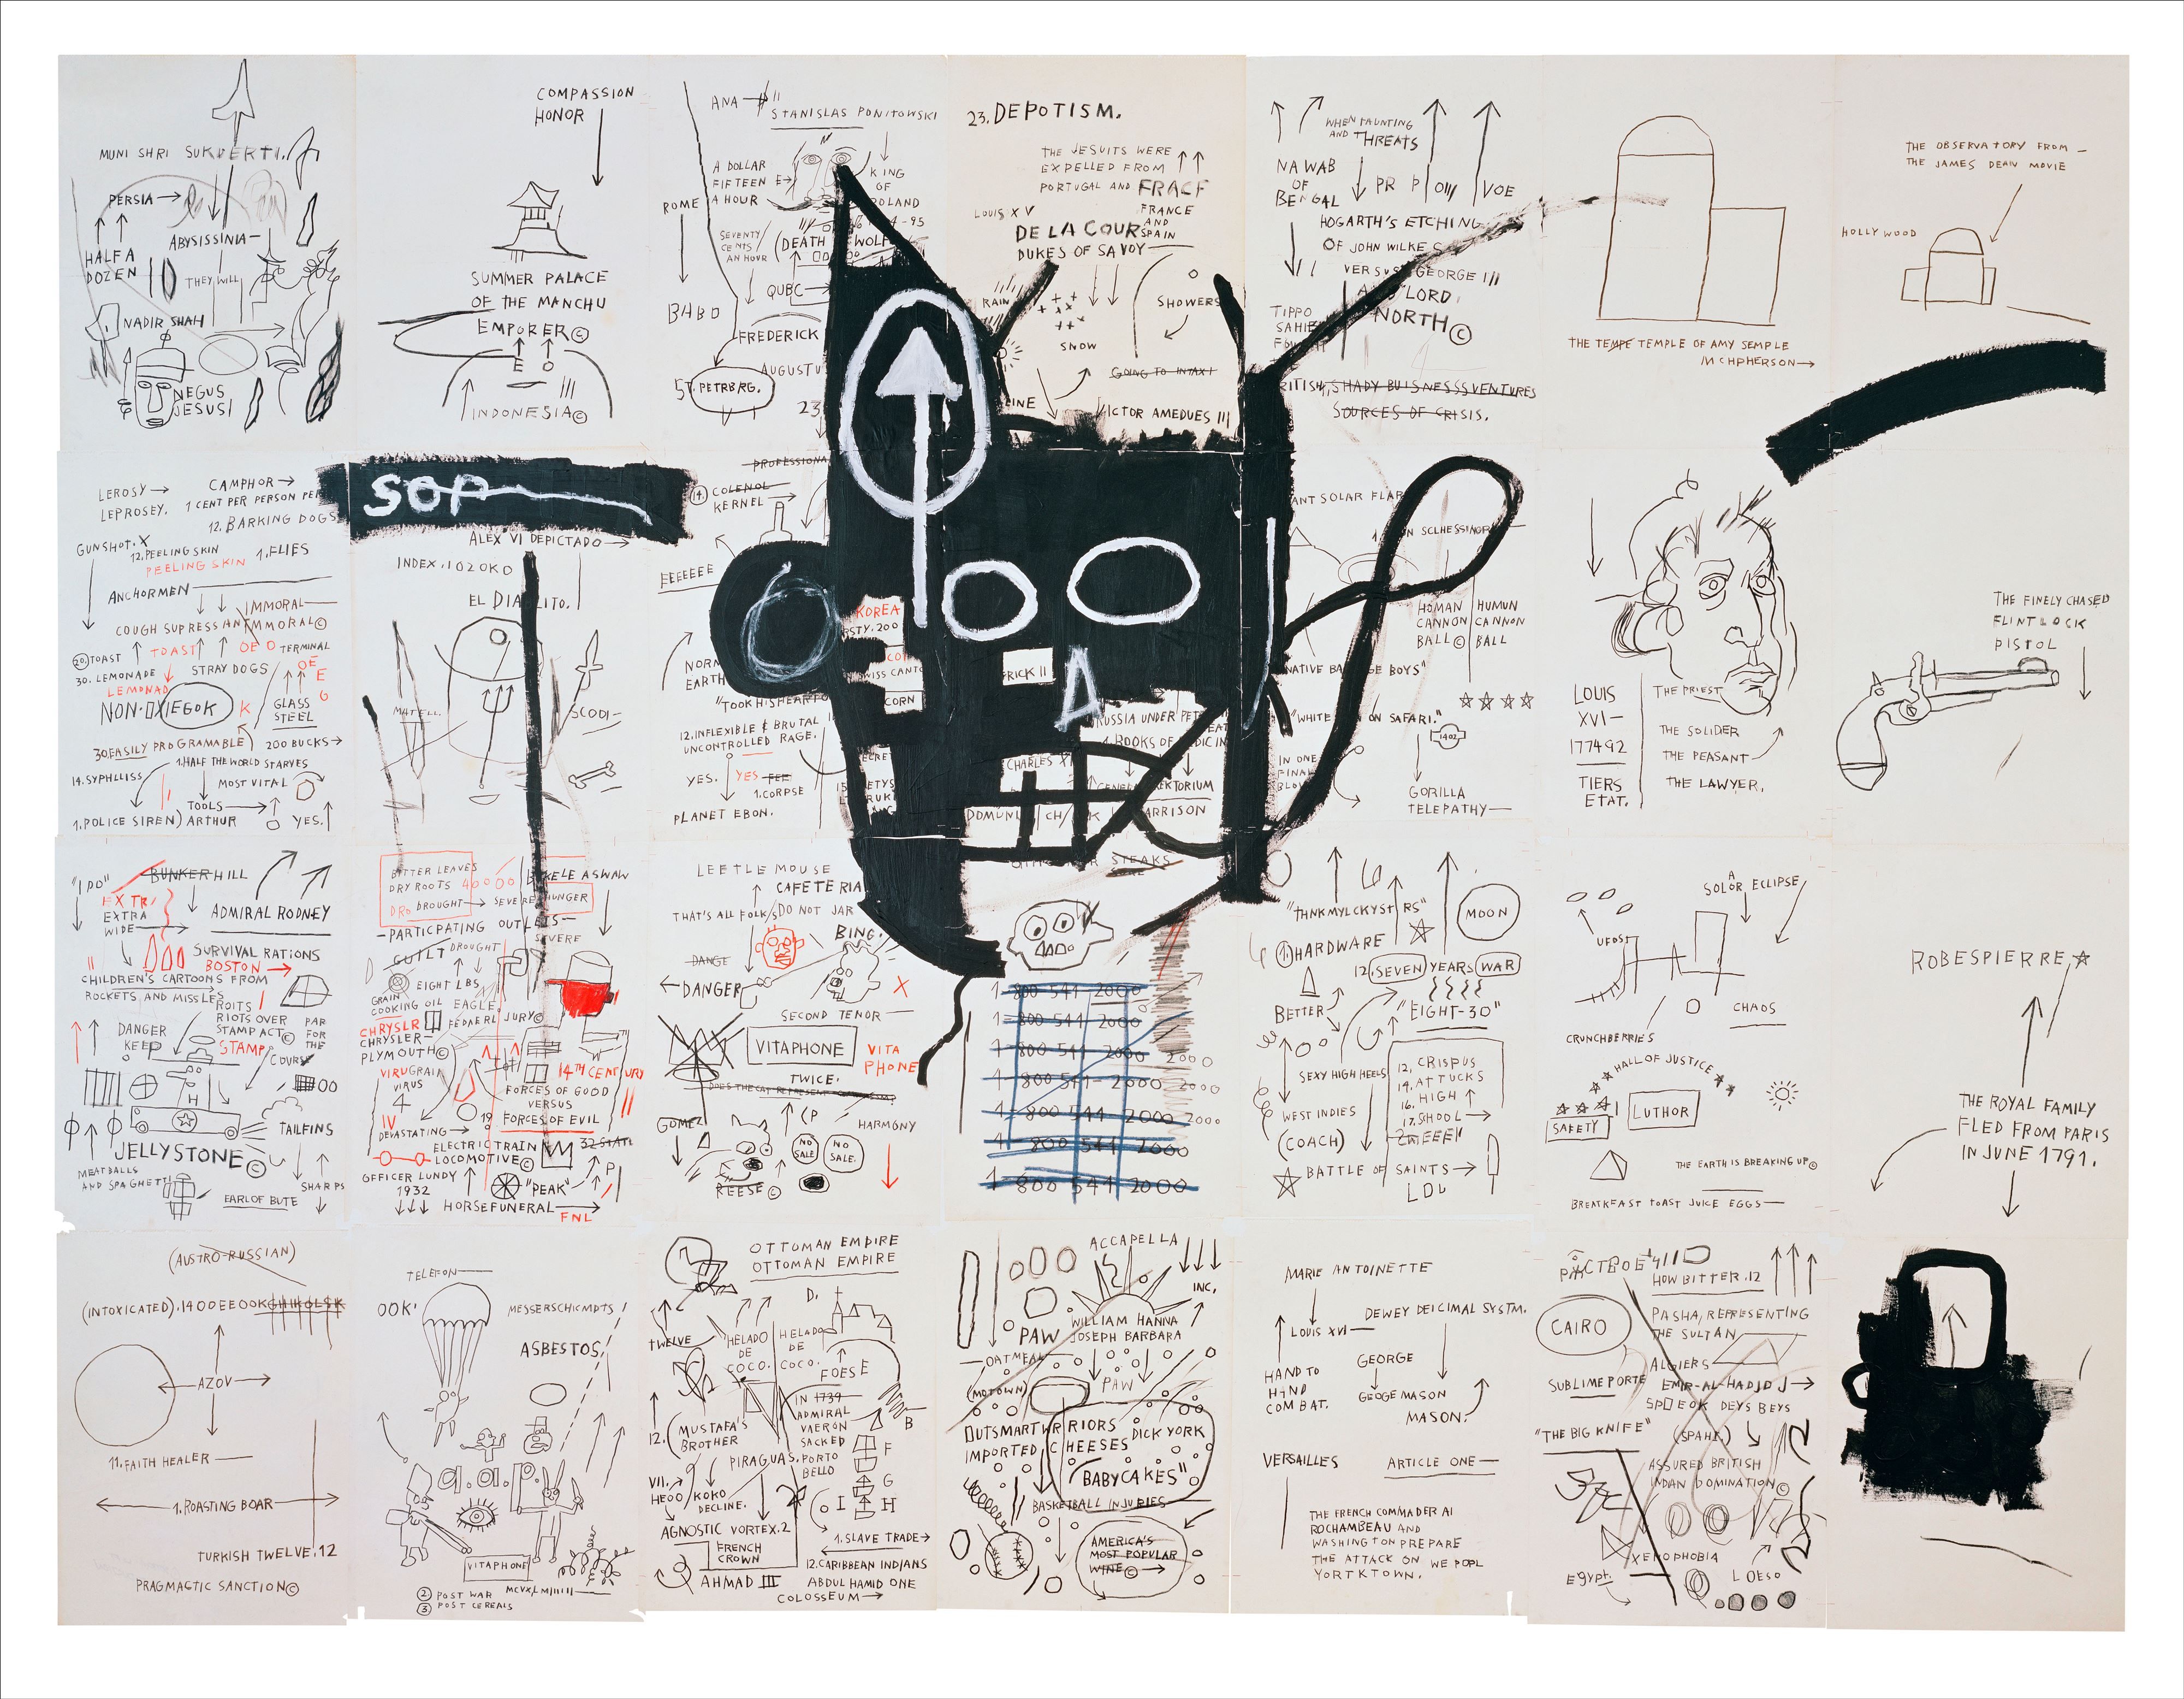 MUNI SHRI SUKDERTI.
PERSIA
ABYSISSINIA—
HALF A
DOZEN
THEY WILL
NADIR SHAH
NEGUS
JESUS!
COMPASSION
HONOR
SUMMER PALACE
OF THE MANCHU
EMPORER©
E O
INDONESIA©
ANA
STANISLAS PONITOWSKI
A DOLLAR
FIFTEEN
A HOUR
KING
OF
POLAND
ROME
SEVENTY
CENTS
AN HOUR
(DEATH WOLF
QUBC
FREDERICK
AUGUSTU
ST. PETRBRG.
23
23. DEPOTISM.
THE JESUITS WERE
EXPELLED FROM
PORTUGAL AND FRACF
FRANCE
AND
SPAIN
LOUIS XV
DE LA COUR
DUKES OF SAVOY—
RAIN
SHOWERS
SNOW
GOING TO INTAXI
LINE
VICTOR AMEDUES III
WHEN TAUNTING
AND THREATS
NAWAB
OF
BENGAL
VOE
HOGARTH'S ETCHING
OF JOHN WILKES
VERSUS GEORGE III
AND LORD
NORTH©
TIPPO
SAHIB
BRITISH, SHADY BUISNESSSVENTURES
SOURCES OF CRISIS.
THE TEMPE TEMPLE OF AMY SEMPLE
MCHPHERSON
THE OBSERVATORY FROM —
THE JAMES DEAN MOVIE
HOLLYWOOD
LEROSY
LEPROSEY.
CAMPHOR
1 CENT PER PERSON PE
12. BARKING DOGS
GUNSHOT. X
12. PEELING SKIN
PEELING SKIN
1. FLIES
ANCHORMEN
IMMORAL—
COUGH SUPRESSANT IMMORAL©
20. TOAST
TOAST
TERMINAL
30. LEMONADE
STRAY DOGS
LEMONAD
GLASS
STEEL
K
30. EASILY PROGRAMABLE
200 BUCKS
1. HALF THE WORLD STARVES
14. SYPHLLISS
MOST VITAL
TOOLS
1. POLICE SIREN) ARTHUR
YES.
SOP
ALEX VI DEPICTADO
INDEX. 1020KO
EL DIABLITO.
MATELL
SCODI-
PROFESSIONA
14. COLENOL
KERNEL
EEEEEEE
NORN
EARTH
"TOOK HIS HEART FO
12. INFLEXIBLE & BRUTAL
UNCONTROLLED RAGE.
YES.
YES FEE
1. CORPSE
PLANET EBON.
KOREA
RSTY. 200
WISS CANTO
CORN
RICK II
RUSSIA UNDER PET
BOOKS OF
CHARLES XI
ARRISON
ANT SOLAR FLAR
N SCLHESSINGR
HOMAN
CANNON
BALL©
HUMUN
CANNON
BALL
NATIVE BA GE BOYS"
"WHITE ON SAFARI."
1402
IN ONE
FINAL
BLOW
GORILLA
TELEPATHY—
LOUIS
XVI—
177492
TIERS
ETAT.
THE PRIEST
THE SOLIDER
THE PEASANT
THE LAWYER.
THE FINELY CHASED
FLINTLOCK
PISTOL
"I DO"
BUNKER HILL
EXTR,
EXTRA
WIDE
ADMIRAL RODNEY
SURVIVAL RATIONS
BOSTON
CHILDREN'S CARTOONS FROM
ROCKETS AND MISSLES
ROITS
RIOTS OVER
STAMP ACT©
STAMP
DANGER
KEEP
PAR
FOR
THE
COURSE
JELLYSTONE©
TAILFINS
MEATBALLS
AND SPAGHETTI
EARL OF BUTE
SHARPS
BITTER LEAVES
DRY ROOTS 40000
DRO DROUGHT SEVERE HUNGER
BEKELE ASWAW
—PARTICPATING OUTLETS—
SEVERE
GUILT DROUGHT
EIGHT LBS
GRAIN
COOKING OIL EAGLE.
CHRYSLR
CHRYSLER—
PLYMOUTH©
FEDAERL JURY©
VIRUGRAIN
VIRUS
4
IV
14TH CENTURY
FORCES OF GOOD
VERSUS
19 FORCES OF EVIL
DEVASTATING
ELECTRIC TRAIN
LOCOMOTIVE©
OFFICER LUNDY
1932
"PEAK"
HORSEFUNERAL
FNL
LEETLE MOUSE
CAFETERIA
THAT'S ALL FOLKS
DO NOT JAR
BING.
DANGE
DANGER
X
SECOND TENOR—
VITAPHONE
VITA
PHONE
TWICE.
DOES THE CAT REPRESENT
GOMEZ
HARMONY
NO
SALE
NO
SALE.
REESE©
STEAKS
1-800 541 2000
1-800 541 2000
1-800 541 2000
2000
1-800 541-2000
2000
1-800 541 2000
2000
1-800 541 2000
1-800 541 2000
"THNKMYLCKYSTRS"
MOON
1 HARDWARE
12. SEVEN YEARS WAR
BETTER
"EIGHT-30"
SEXY HIGH HEELS
12. CRISPUS
14. ATTUCKS
16. HIGH
17. SHOOL
WEST INDIES
(COACH)
BATTLE OF SAINTS
A
SOLOR ECLIPSE
UFOS
CHAOS
CRUNCHBERRIES
HALL OF JUSTICE
LUTHOR
SAFETY
THE EARTH IS BREAKING UP©
BREAKFEAST TOAST JUICE EGGS—
ROBESPIERRE
THE ROYAL FAMILY
FLED FROM PARIS
IN JUNE 1791.
(AUSTRO-RUSSIAN)
(INTOXICATED). 1400EEOOK
AZOV
11. FAITH HEALER
1. ROASTING BOAR
TURKISH TWELVE. 12
PRAGMAGTIC SANCTION©
TELEFON
OOK'
MESSERSCHCMDTS
ASBESTOS.
VITAPHONE
2 POST WAR
3 POST CEREALS
OTTOMAN EMPIRE
OTTOMAN EMPIRE
D.
TWELVE
HELADO
DE
COCO.
HELADO
DE
COCO.
FOESE
IN 1739
ADMIRAL
VAERON
SACKED
PORTO
BELLO
12. (MUSTAFA'S
BROTHER
B
F
G
H
I
PIRAGUAS.
VII.
HEOO
KOKO
DECLINE.
AGNOSTIC VORTEX. 2
FRENCH
CROWN
1. SLAVE TRADE
12. CARIBBEAN INDIANS
AHMAD III
ABDUL HAMID ONE
COLOSSEUM
ACCAPELLA
INC.
WILLIAM HANNA
JOSEPH BARBARA
PAW
OATMEAL
PAW
(MOTOWN)
OUTSMART WRRIORS
DICK YORK
IMPORTED CHEESES
"BABYCAKES"
BASKETBALL INJURIES
AMERICA'S
MOST POPULAR
WINE©
MARIE ANTOINETTE
DEWEY DEICIMAL SYSTM.
LOUIS XVI—
GEORGE
HAND TO
HAND
COMBAT.
GEOGE MASON
MASON.
VERSAILLES
ARTICLE ONE—
THE FRENCH COMMADER AI
ROCHAMBEAU AND
WASHINGTON PREPARE
THE ATTACK ON WE POPL
YORTKTOWN.
HOW BITTER. 12
CAIRO
PASHA, REPRESENTING
THE SULTAN
ALGIERS
SUBLIME PORTE
EMIR-AL-HADJDJ
DEYS BEYS
"THE BIG KNIFE"
(SPAHI.)
ASSURED BRITISH
INDIAN DOMINATION©
XENOPHOBIA
EGYPT.
LOESO